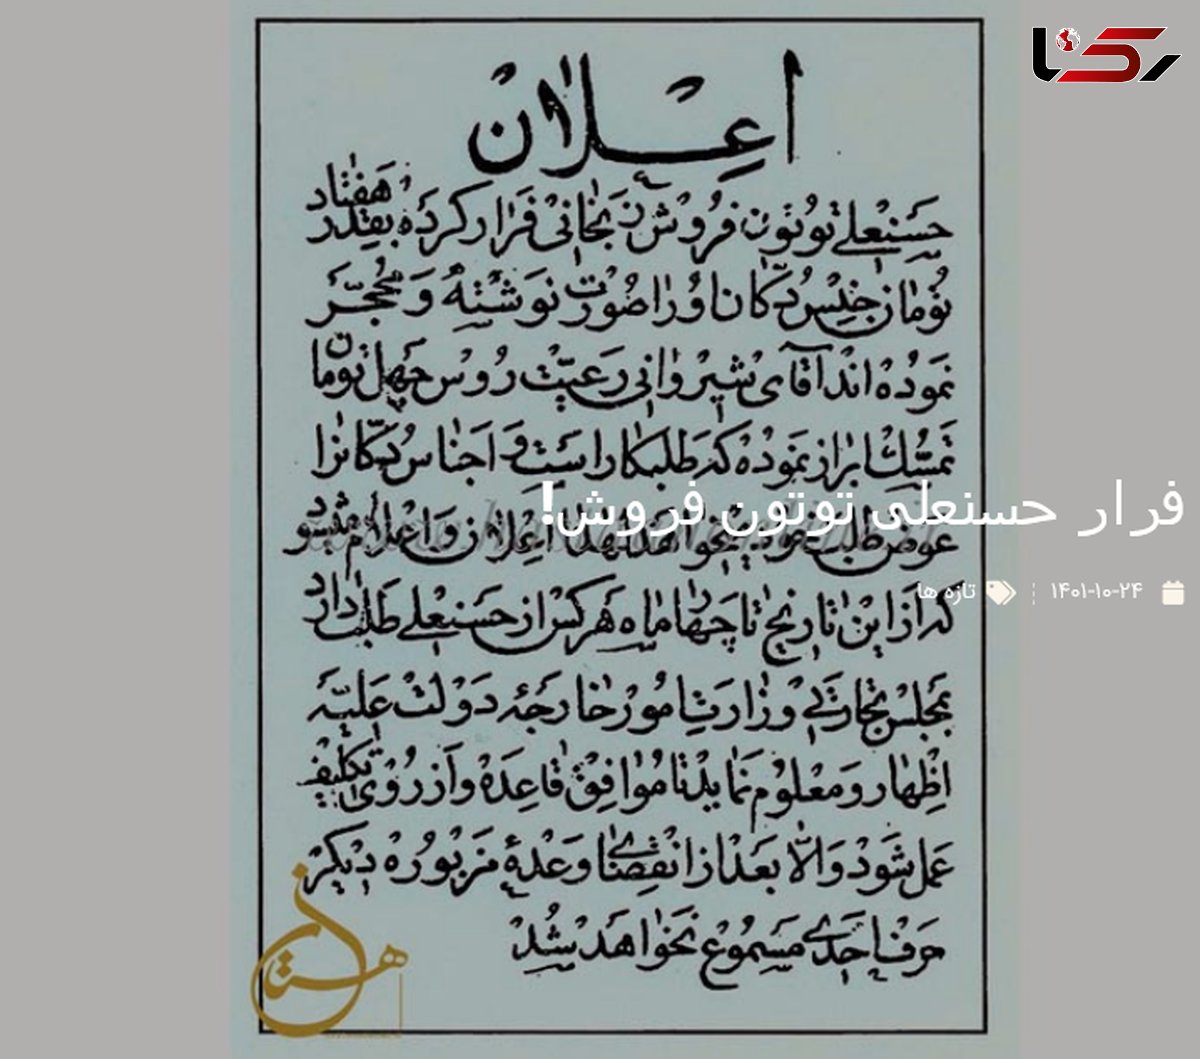 رکنا
اعلان
حسنعلی توتون فروش نخجانی فرار کرده بقدر هفتاد
تومان جنیس دکان او را صورت نوشته و محجر
نموده اند آقای شیروانی رعیت روس چهل تومان
تمسک ابراز نموده که طلبکار است و اجناس دکانرا
عوض طلب خود میخواهد لهذا اعلان و اعلام میشود
که از این تاریخ تا چهار ماه هر کس از حسنعلی طلب دارد
بمجلس تجارتی وزارت امور خارجه دولت علیّه
اظهار و معلوم نماید تا موافق قاعده و از روی تکلیف
عمل شود والّا بعد از انقضای وعدهٔ مزبوره دیگر
حرف احدی مسموع نخواهد شد
فرار حسنعلی توتون فروش!
۱۴۰۱-۱۰-۲۴
تازه ها